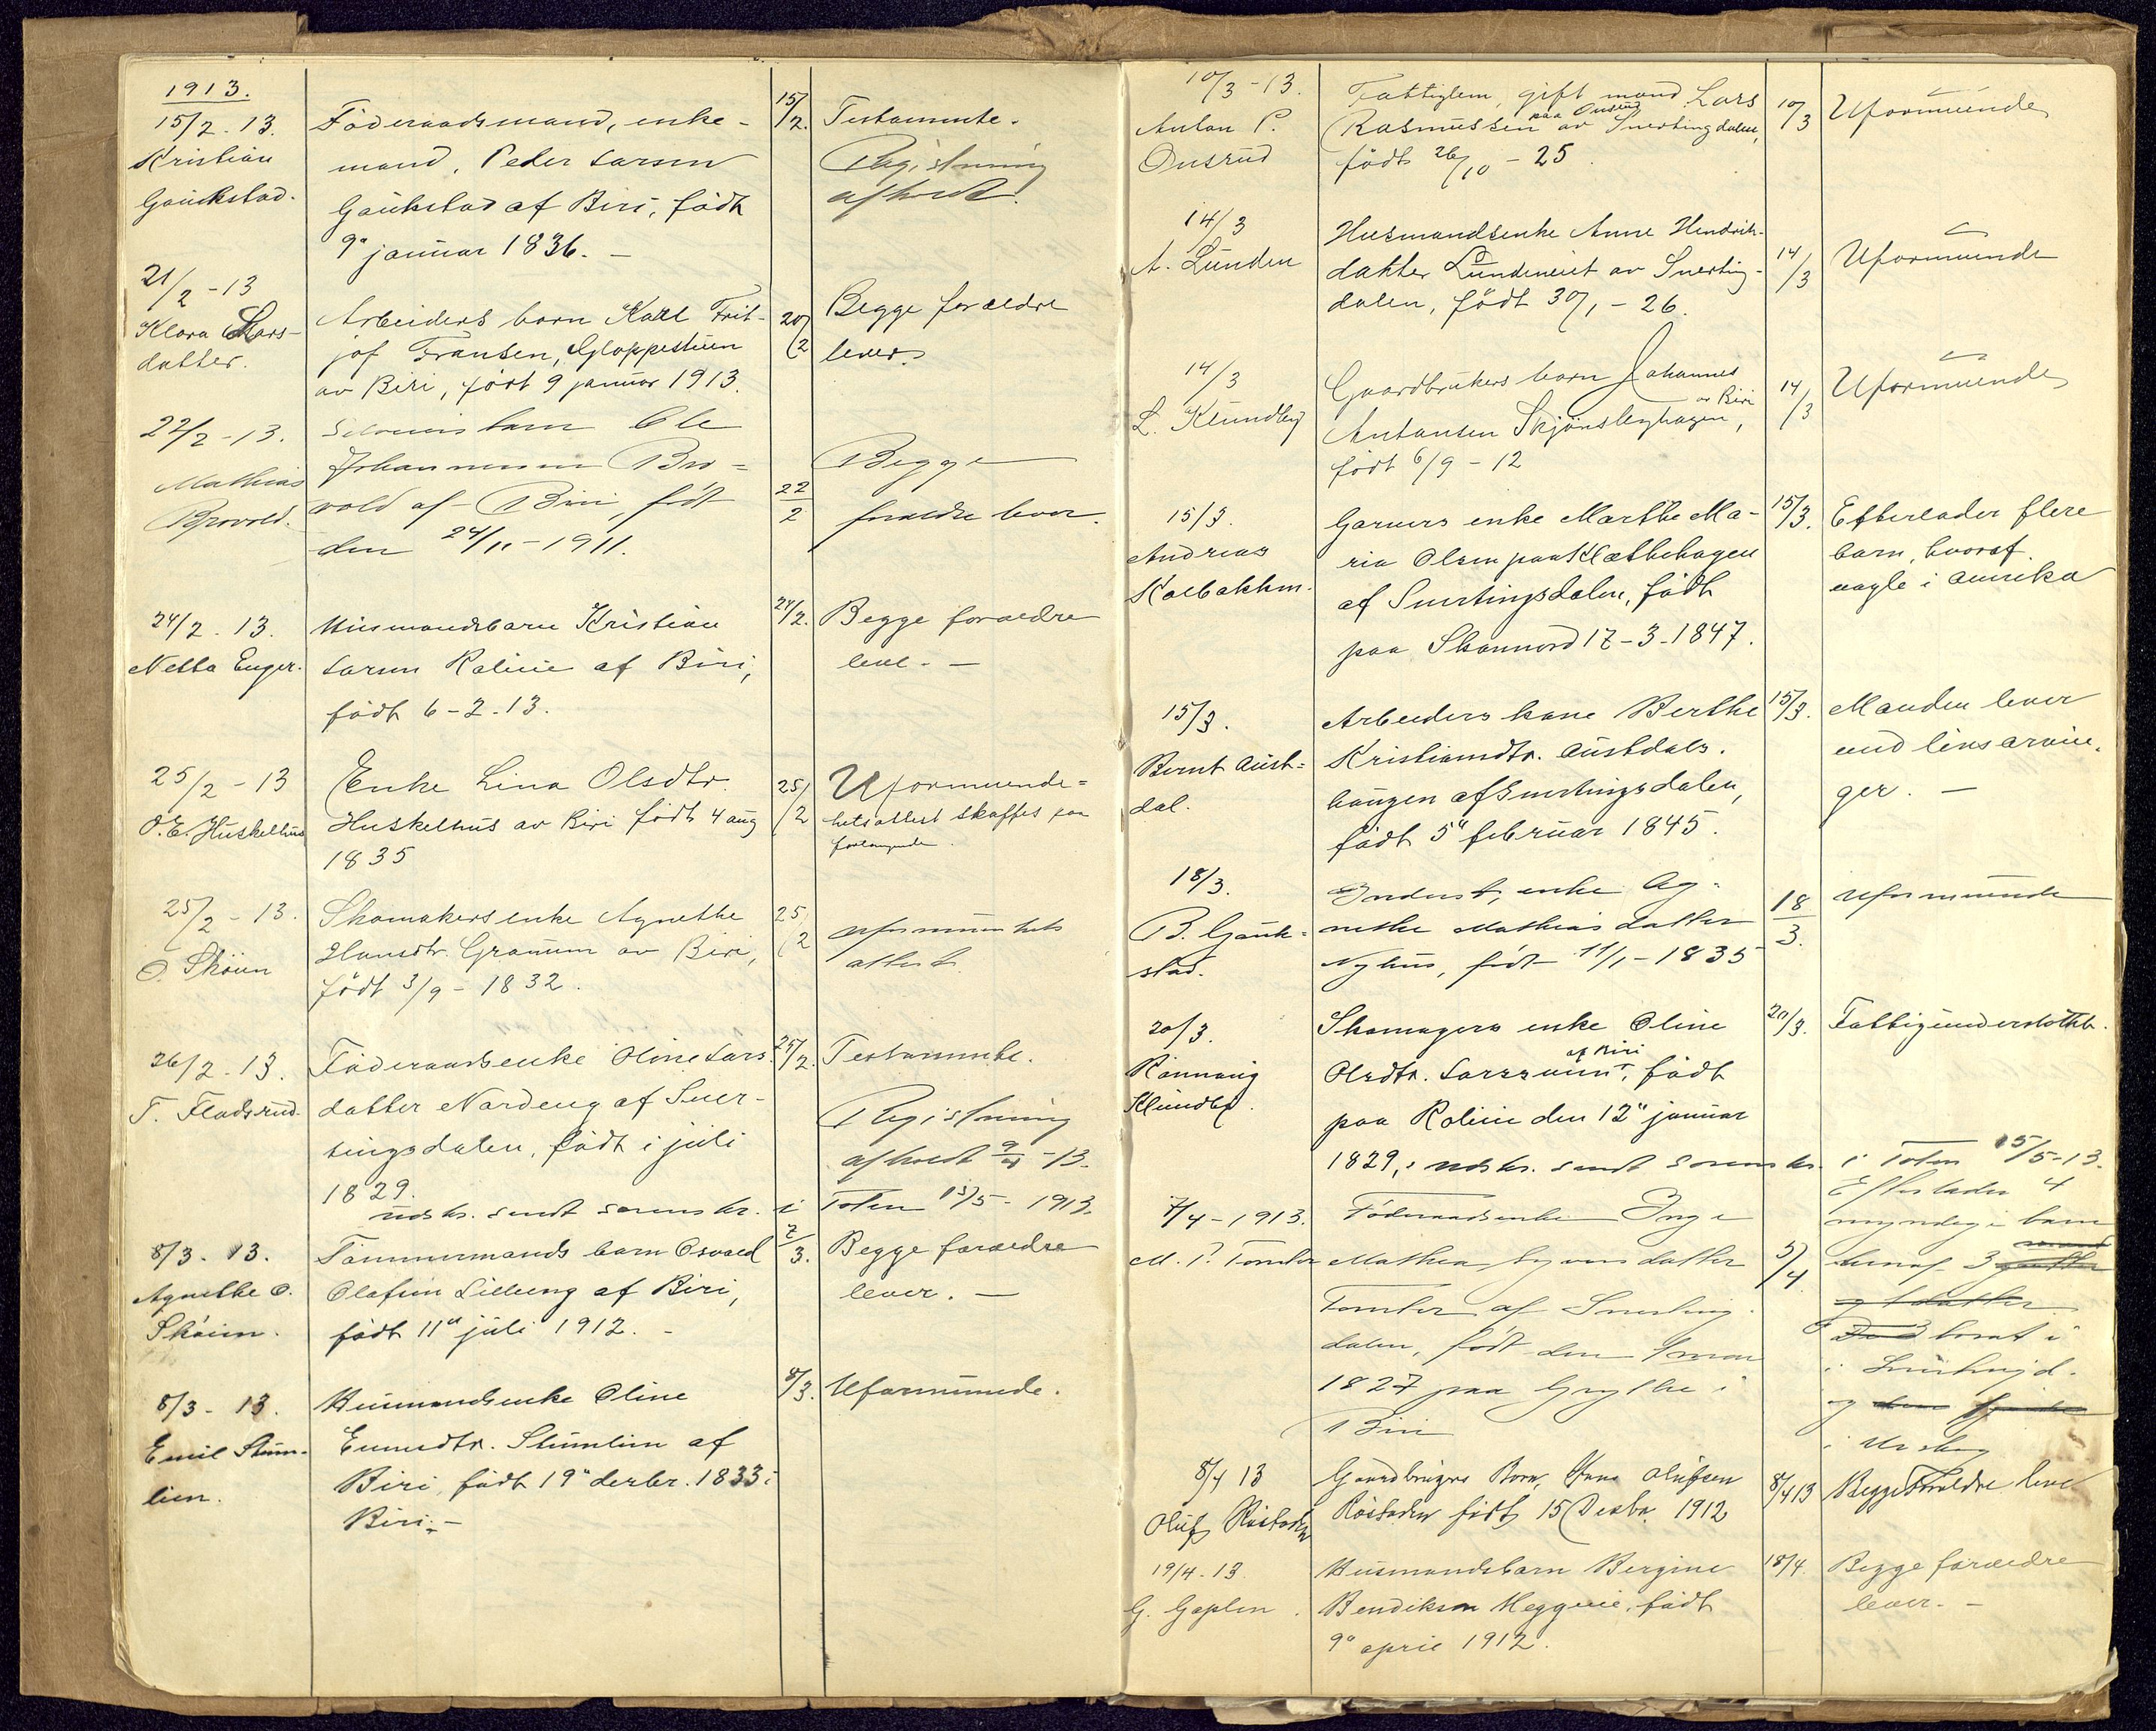 1913.
15/2. 13.
Kristian
Gaukstad.
Föderaadsmand, enke-
mand, Peder Larsen
Gaukstad af Biri, födt
9" januar 1836. -
15/2.
Testamente.
Registrering
afholdt.
21/2 - 13
Klara Lars-
datter.
Arbeiders barn Karl Frit-
jof Fransen, Gloppestuen
av Biri, født 9 januar 1913.
20/2
Begge forældre
lever.
22/2 - 13.
Mathias
Brovold.
barn Ole
Johannesen Bro=
vold af Biri, født
den 24/11 - 1911.
22/2
Begge
forældre lever.
24/2. 13.
Netta Enger.
Husmandsbarn Kristian
Larsen Kaline af Biri,
födt 6-2.13.
24/2.
Begge forældre
leve. -
25/2 - 13
O. E. Huskelhus
Enke Lina Olsdtr.
Huskelhus av Biri født 4 aug
1835
25/2
Uformuende=
hetsattest skaffes paa
forlangende.
25/2 - 13.
O. Sköien
Skomakers enke Agnethe
Hansdtr. Granum av Biri,
født 3/9 - 1832.
25/2
uformuenhets
attest
26/2. 13.
T. Fladsrud
Föderaadsenke Oline Lars-
datter Nordeng af Sner-
tingsdalen, födt i juli
1829.
25/2.
Testamente.
Registrering
afholdt 9/4 - 13.
udskr. sendt sorenskr. i Toten 15/5 - 1913.
8/3. 13.
Agnethe O.
Sköien.
Tömmermands barn Osvald
Olafsen Lilleeng af Biri,
födt 11" juli 1912. -
7/3.
Begge forældre
lever. -
8/3 - 13.
Emil Stum-
lien.
Husmandsenke Oline
Evensdtr. Stumlien af
Biri, födt 19" decbr. 1833 i
Biri. -
8/3.
Uformuende.
10/3 - 13.
Anton P.
Onsrud
Fattiglem, gift mand Lars
paa Onsrud
Rasmussen av Snertingdalen,
födt 26/10 - 25.
10/3
Uformuende
14/3
A. Lunden
Husmandsenke Anne Hendrik-
datter Lundeneiet av Snerting-
dalen, födt 30/1 - 26.
14/3
Uformuende
14/3
L. Klundby
Gaardbrukers barn Johannes
av Biri
Antonsen Skjönsbyhagen,
födt 6/9 - 12
14/3
Uformuende
15/3.
Andreas
Kolbakken.
Garvers enke Marthe Ma-
ria Olsen paa Klæthehagen
af Snertingsdalen, födt
paa Skonnord 17-3-1847.
15/3.
Efterlader flere
barn, hvoraf
nogle i Amerika
15/3.
Bernt Aust=
dal.
Arbeiders kone Berthe
Kristiansdtr. Austdals-
haugen af Snertingsdalen,
födt 5" februar 1845.
15/3.
Manden lever
med livsarvin-
ger. -
18/3.
B. Gauk=
stad.
Inderst, enke Ag-
nethe Mathiasdatter
Nyhus, født 11/1 - 1835
18/3.
Uformuende
20/3.
Rönnaug
Klundby.
Skomagers enke Oline
af Biri
Olsdtr. Larsveen, födt
paa Kolien den 12" januar
1829,
20/3.
Fattigunderstöttet.
udskr. sendt sorenskr. i Toten 15/5-13.
7/4 - 1913.
M. P. Tomter
Föderaadsenke Inge
Mathea Syversdatter
Tomter af Snerting-
dalen, født den 1 mai
1827 paa Grythe i
Biri
5/4
Efterlader 4
myndige barn
hvoraf 3
og 1 datter
bosat i
i Snertingd.
og
8/4 13
Oluf Röstaden
Gaardbrugers Barn, Jens Olufsen
Röstaden født 15 Desbr. 1912
8/4 13
Begge Foreldre leve
19/4 - 13
G. Gaplen.
Husmandsbarn Bergine
Bendiksen Heggeeie, födt
9" april 1912.
18/4.
Begge forældre
lever. -